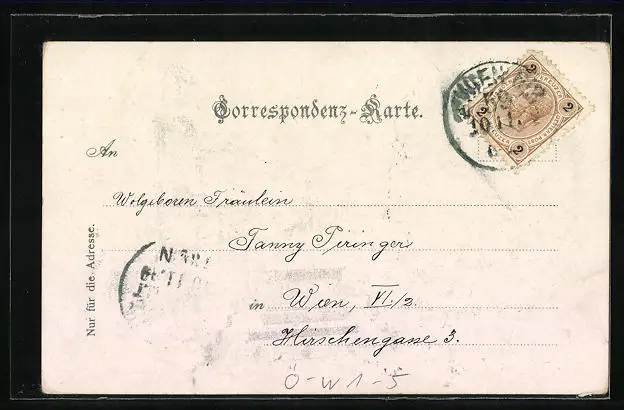 Correspondenz-Karte.
An
Wolgeboren Fräulein
Fanny Piringer
in Wien, VI./2
Hirschengasse 3.
Nur für die Adresse.
2 2 2 2
Ö-W1-5